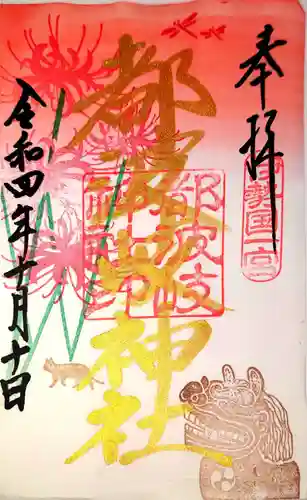 奉拝
伊勢国一宮
都波岐神社
都波岐
神社
令和四年十月十日